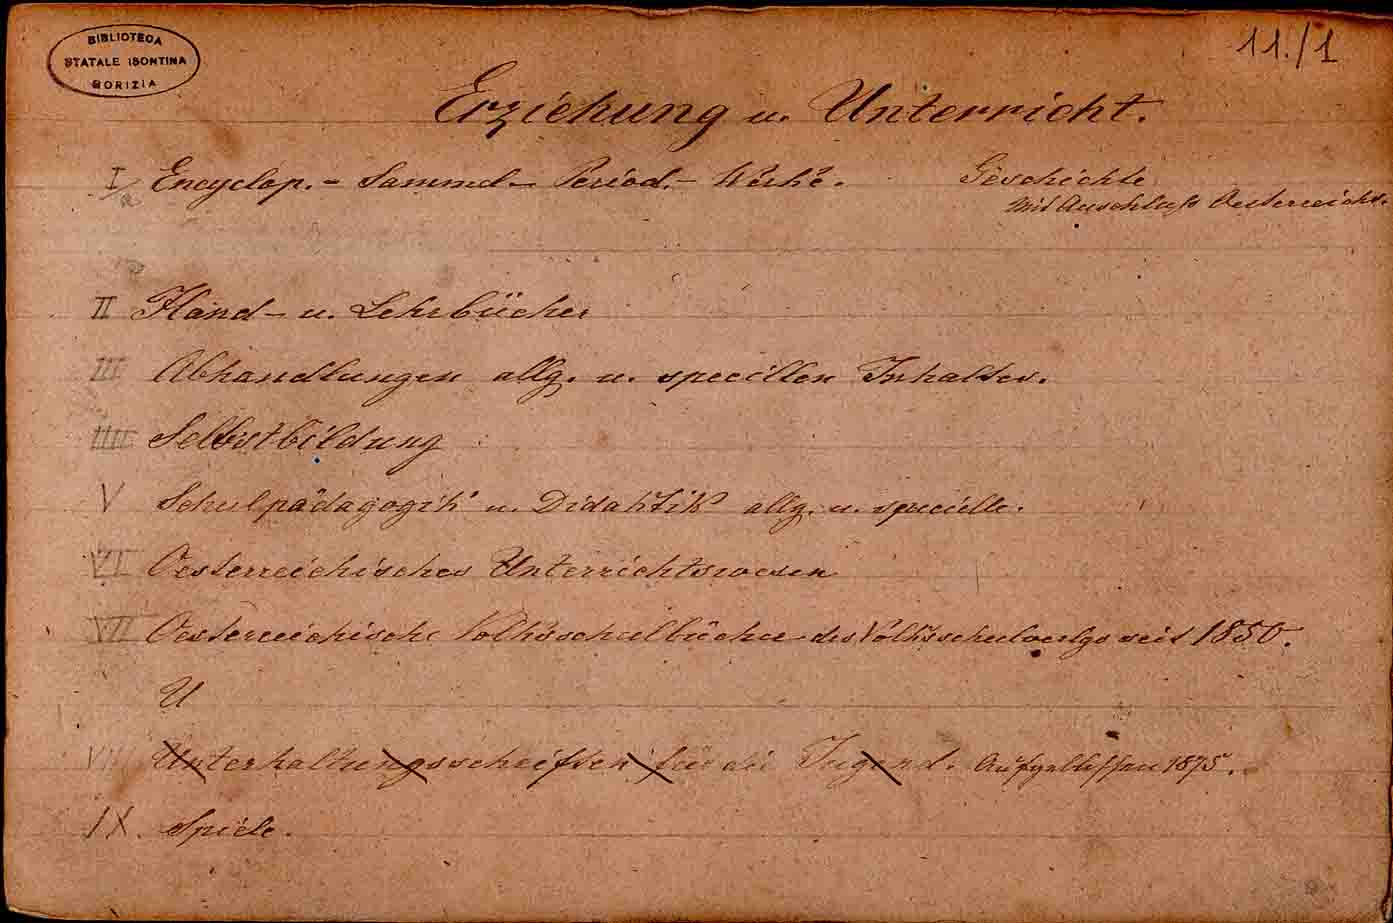 BIBLIOTECA
STATALE ISONTINA
GORIZIA
11./1
Erziehung u. Unterricht.
I Encyclop. - Samml - Period. - Werke.
a
Geschichte
mit Auschluß Oesterreichs.
II Hand - u. Lehrbücher
III Abhandlungen allg. u. speciellen Inhaltes.
IIII Selbstbildung
V Schulpädagogik u. Didaktik allg. u. specielle.
VI Oesterreichisches Unterrichtswesen
VII Oesterreichische Volksschulbücher des Volksschulverlgs seit 1850.
U
VIII Unterhaltungsschriften für die Jugend. Aufgelassen 1875.
IX. Spiele.